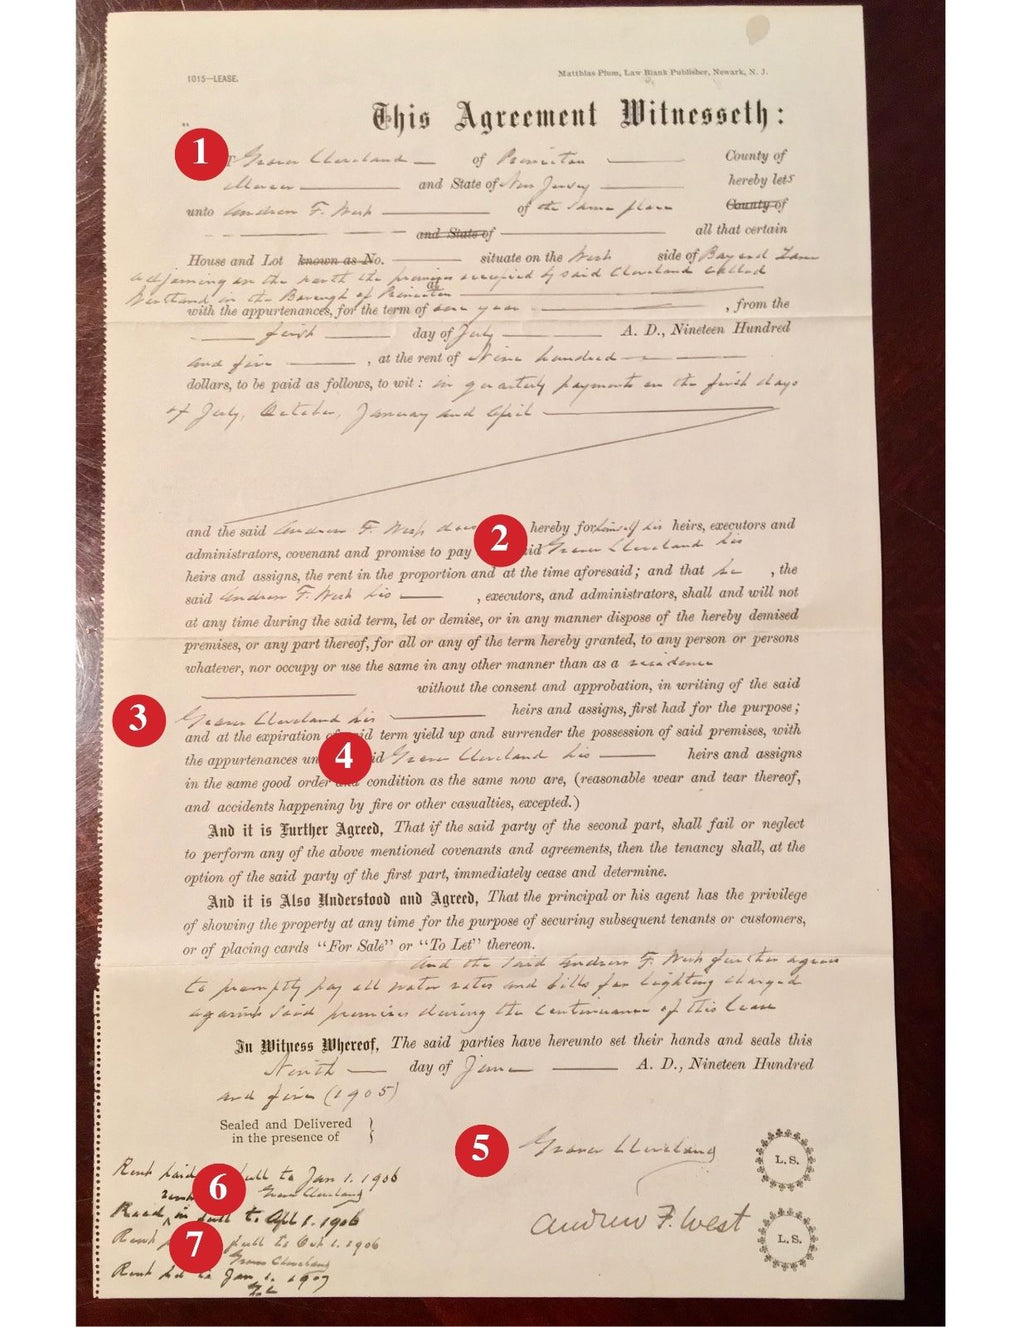 1015—LEASE.
Matthias Plum, Law Blank Publisher, Newark, N. J.
This Agreement Witnesseth:
1 Grover Cleveland of Princeton County of
Mercer and State of New Jersey hereby lets
unto Andrew F. West of the same place County of
and State of all that certain
House and Lot known as No. situate on the West side of Bayard Lane
adjoining on the north the premises occupied by said Cleveland called
Westland in the Borough of Princeton
with the appurtenances, for the term of one year , from the
first day of July A. D., Nineteen Hundred
and five , at the rent of Nine hundred
dollars, to be paid as follows, to wit: in quarterly payments on the first days
of July, October, January and April
and the said Andrew F. West does 2 hereby for himself his heirs, executors and
administrators, covenant and promise to pay said Grover Cleveland his
heirs and assigns, the rent in the proportion and at the time aforesaid; and that he , the
said Andrew F. West his , executors, and administrators, shall and will not
at any time during the said term, let or demise, or in any manner dispose of the hereby demised
premises, or any part thereof, for all or any of the term hereby granted, to any person or persons
whatever, nor occupy or use the same in any other manner than as a residence
without the consent and approbation, in writing of the said
3 Grover Cleveland his heirs and assigns, first had for the purpose;
and at the expiration of said term yield up and surrender the possession of said premises, with
the appurtenances 4 Grover Cleveland his heirs and assigns
in the same good order and condition as the same now are, (reasonable wear and tear thereof,
and accidents happening by fire or other casualties, excepted.)
And it is Further Agreed, That if the said party of the second part, shall fail or neglect
to perform any of the above mentioned covenants and agreements, then the tenancy shall, at the
option of the said party of the first part, immediately cease and determine.
And it is Also Understood and Agreed, That the principal or his agent has the privilege
of showing the property at any time for the purpose of securing subsequent tenants or customers,
or of placing cards "For Sale" or "To Let" thereon.
And the said Andrew F. West further agrees
to promptly pay all water rates and bills for lighting charged
against said premises during the continuance of this lease
In Witness Whereof, The said parties have hereunto set their hands and seals this
Ninth day of June A. D., Nineteen Hundred
and five (1905)
Sealed and Delivered
in the presence of
5 Grover Cleveland L. S.
Andrew F. West L. S.
Rent paid full to Jan 1. 1906
6 Grover Cleveland
in full to Apl 1. 1906
Rent 7 full to Oct 1. 1906
Grover Cleveland
Rent pd to Jan 1. 1907